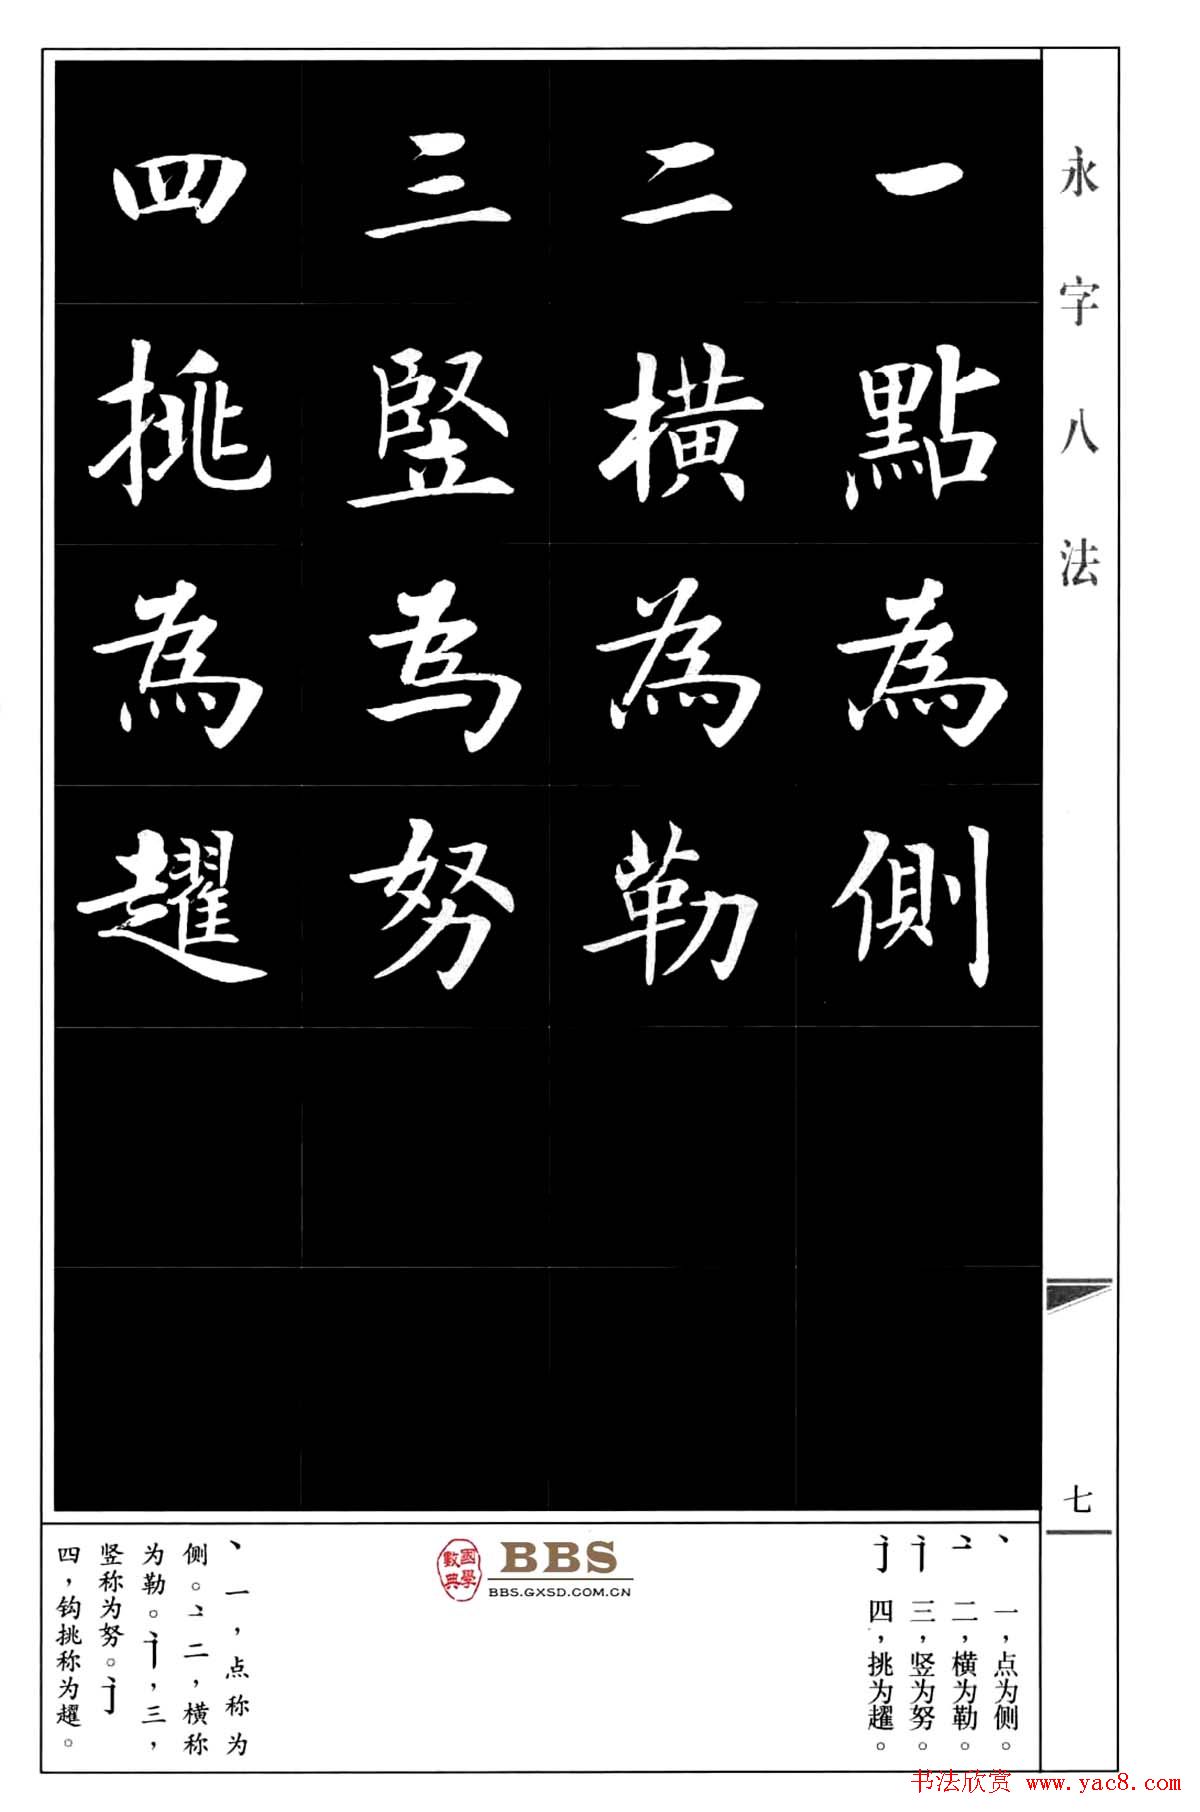 永字八法
一點為側
二橫為勒
三竪為努
四挑為趯
七
丶 一，点为侧。
二，横为勒。
三，竖为努。
四，挑为趯。
國學
數典
BBS
BBS.GXSD.COM.CN
丶一，点称为
侧。二，横称
为勒。三，
竖称为努。
四，钩挑称为趯。
书法欣赏 www.yac8.com